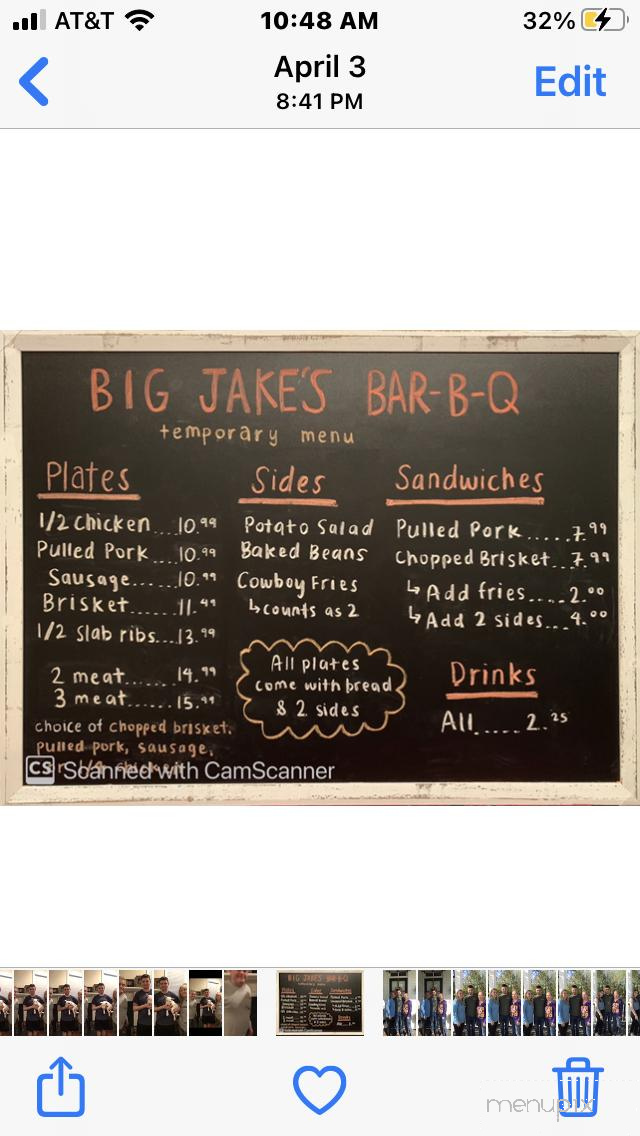 AT&T 10:48 AM 32%
April 3
8:41 PM
Edit
BIG JAKE'S BAR-B-Q
temporary menu
Plates
1/2 chicken....10.99
Pulled Pork....10.99
Sausage......10.99
Brisket......11.49
1/2 slab ribs...13.99
2 meat......14.99
3 meat......15.99
choice of chopped brisket,
pulled pork, sausage,
Sides
Potato Salad
Baked Beans
Cowboy Fries
↳counts as 2
All plates
come with bread
& 2 sides
Sandwiches
Pulled Pork.....7.99
Chopped Brisket..7.99
↳ Add fries....2.00
↳ Add 2 sides...4.00
Drinks
All.....2.25
CS Scanned with CamScanner
menupix